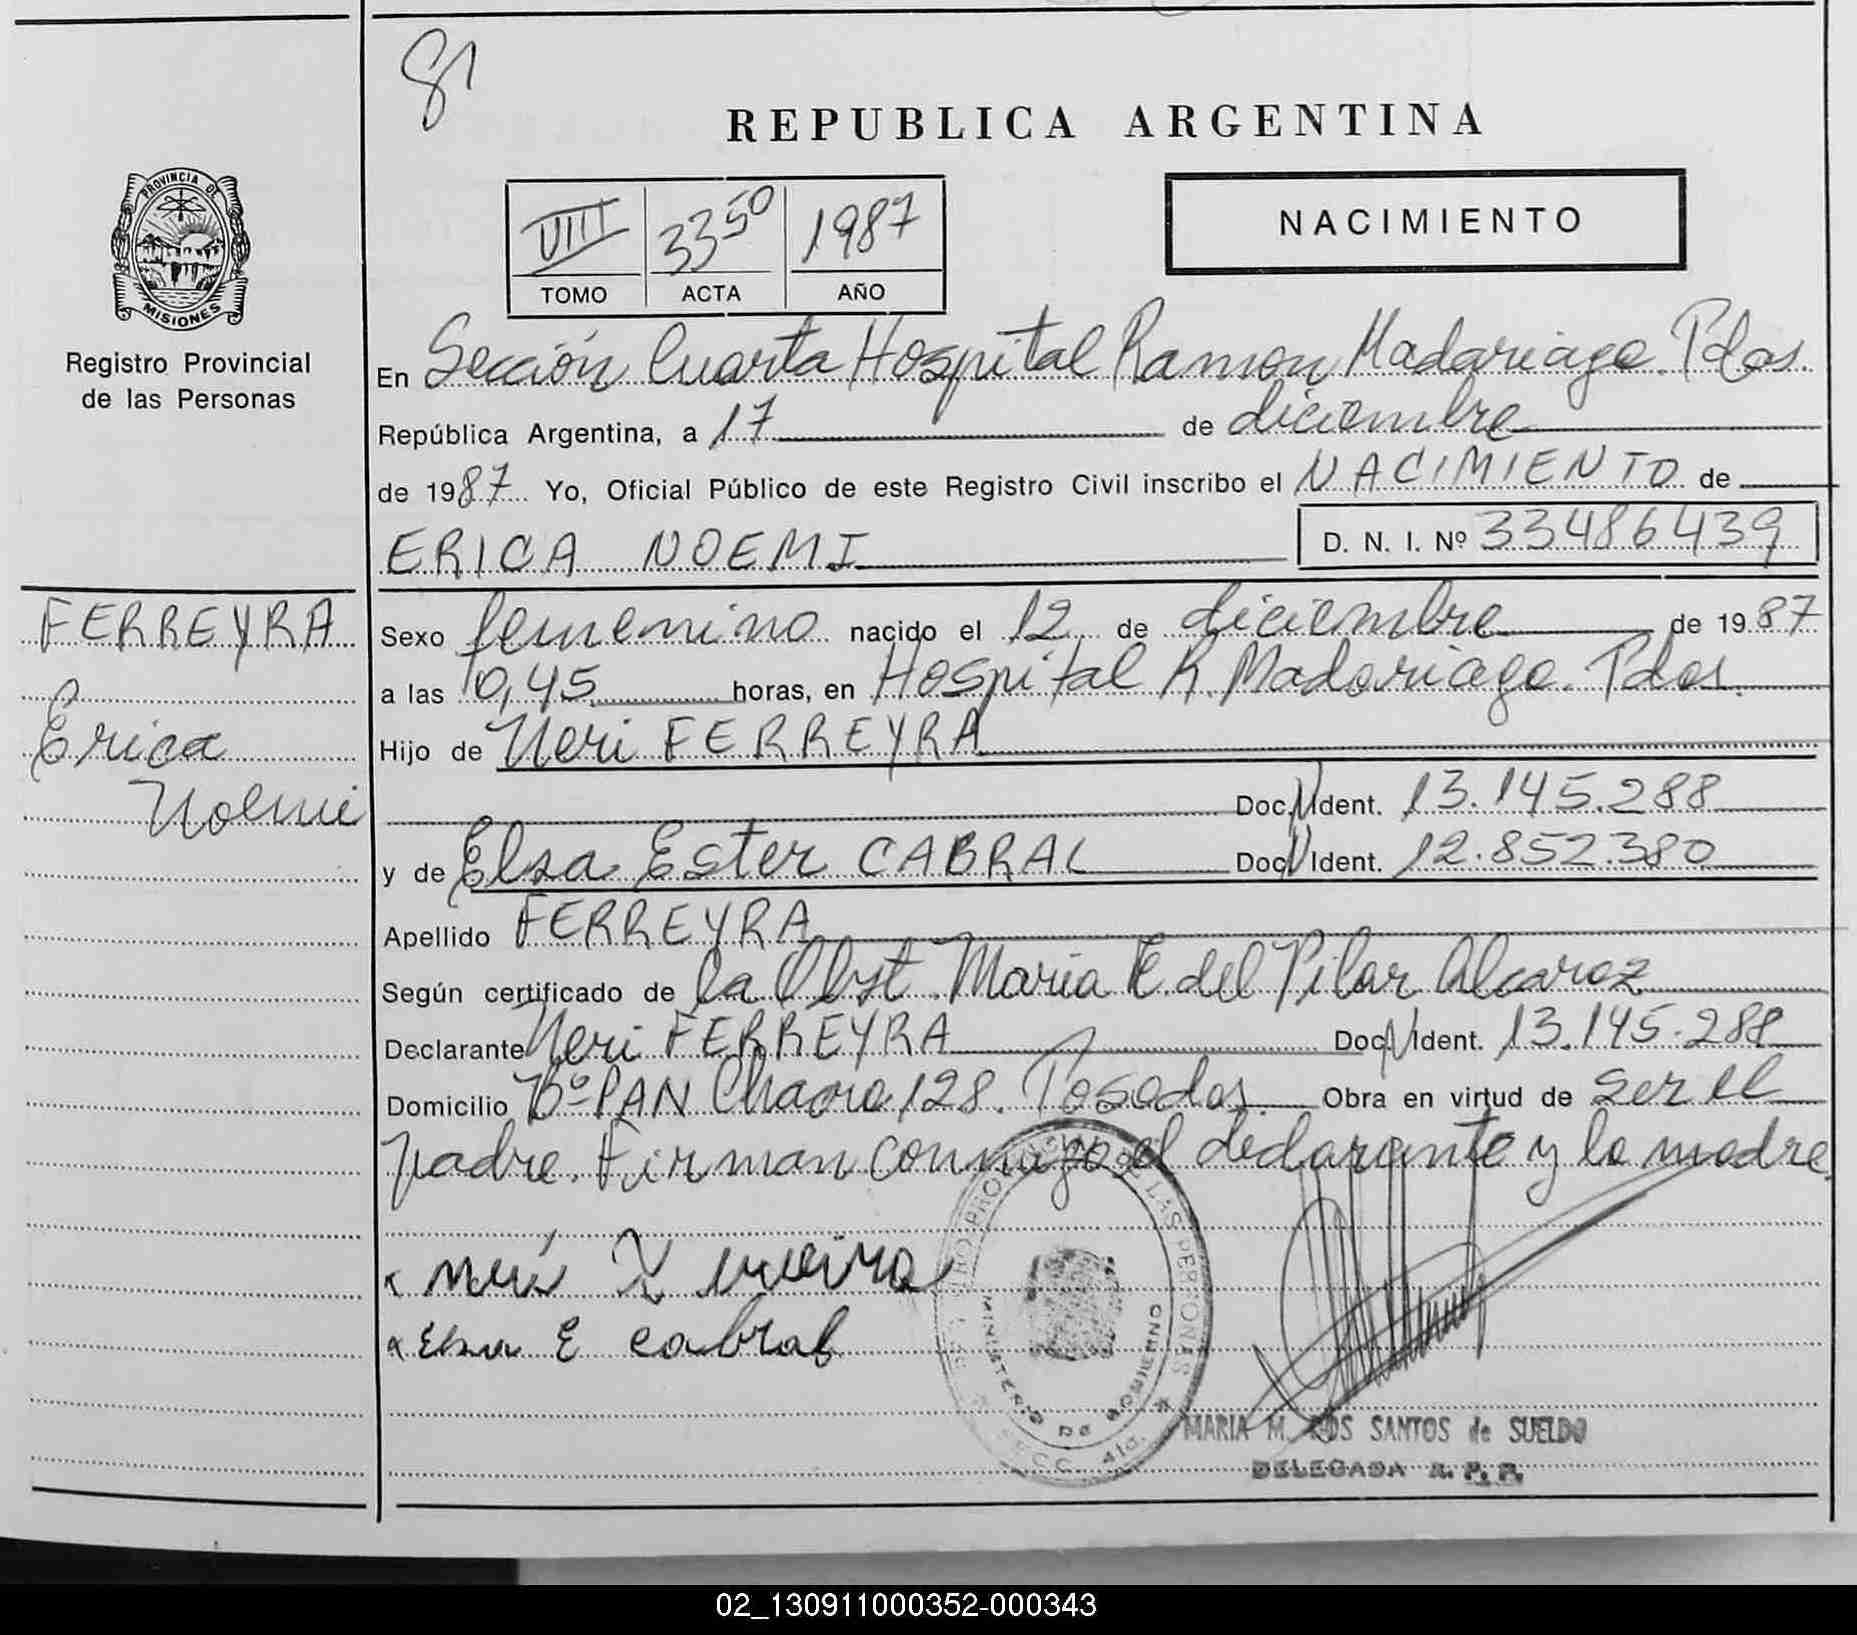 81
REPUBLICA ARGENTINA
PROVINCIA DE
MISIONES
Registro Provincial
de las Personas
VIII 3350 1987
TOMO ACTA AÑO
NACIMIENTO
En Sección Cuarta Hospital Ramon Madariaga. Pdas.
República Argentina, a 17 de diciembre
de 1987 Yo, Oficial Público de este Registro Civil inscribo el NACIMIENTO de
ERICA NOEMI D. N. I. Nº 33486439
FERREYRA
Erica
Noemi
Sexo femenino nacido el 12 de diciembre de 1987
a las 0,45 horas, en Hospital R. Madariaga. Pdas.
Hijo de Neri FERREYRA
Doc. Ident. 13.145.288
y de Elsa Ester CABRAL Doc. Ident. 12.852.380
Apellido FERREYRA
Según certificado de la Obst. Maria E. del Pilar Alcaraz
Declarante Neri FERREYRA Doc. Ident. 13.145.288
Domicilio Bº PAN Chacra 128. Posadas. Obra en virtud de ser el
padre. Firman conmigo el declarante y la madre.
Elsa E cabral
REGISTRO PROVINCIAL DE LAS PERSONAS
MINISTERIO DE GOBIERNO
SECC. 4ta.
MARIA M. DOS SANTOS de SUELDO
DELEGADA R. P. P.
02_130911000352-000343